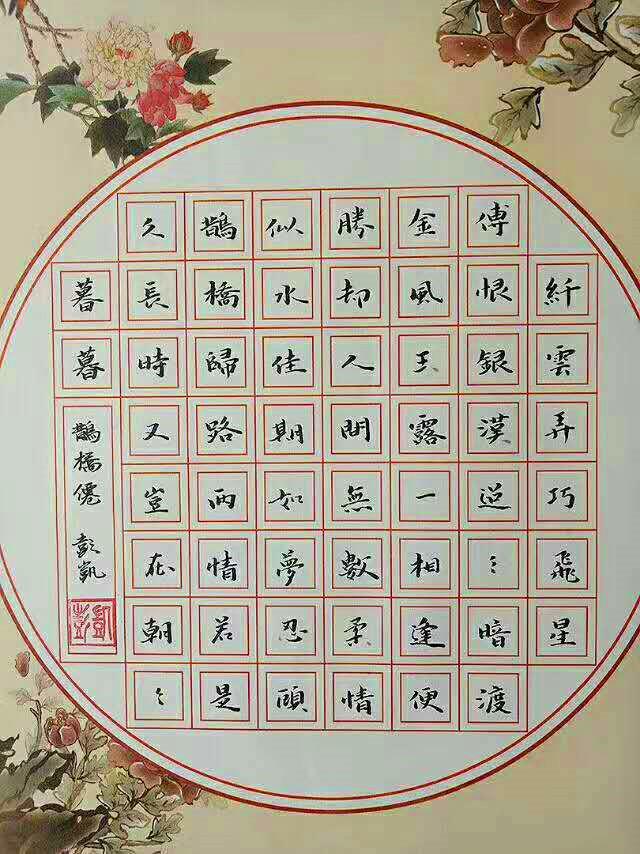 纖雲弄巧飛星
傳恨銀漢迢〻暗渡
金風玉露一相逢便
勝却人間無數柔情
似水佳期如夢忍頋
鵲橋歸路兩情若是
久長時又豈在朝〻
暮暮
鵲橋僊 彭凱
彭凱